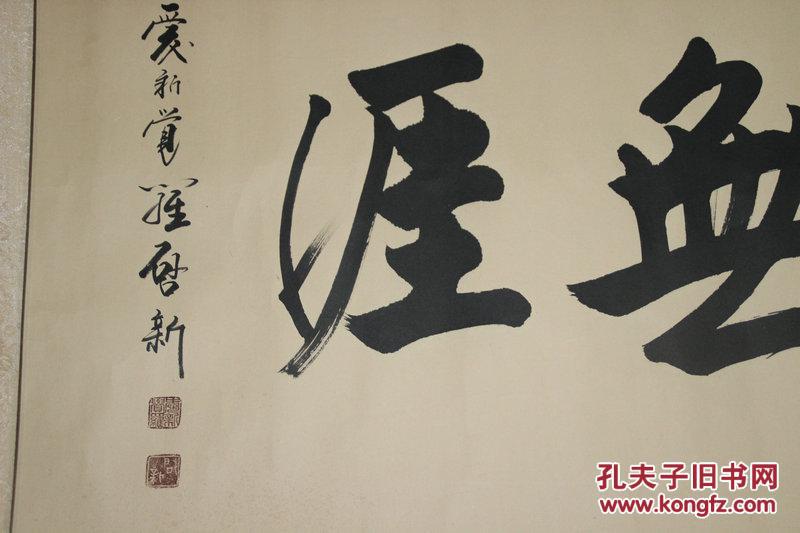 無涯
愛新覺羅啓新
孔夫子旧书网
www.kongfz.com